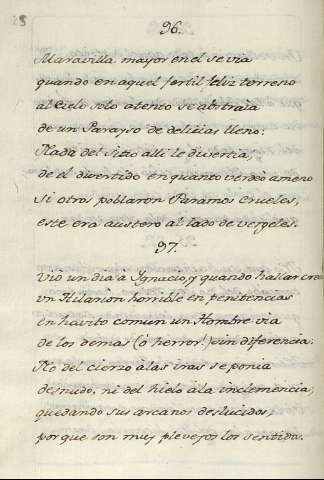 96.
Maravilla mayor en el se via
quando en aquel fertil, feliz terreno
al Cielo solo atento se abtraia
de un Parayso de delicias lleno:
Nada del Sitio alli le divertia,
de el divertido en quanto verdeò ameno
Si otros poblaron Paramos crueles,
este era austero al lado de vergeles.
97.
Viò un dia à Ignacio, y quando hallar cree
vn Hilarion horrible en penitencias
en havito comun un Hombre via
de los demas (ò horror!) sin diferencia.
No del cierzo à las iras se ponia
desnudo, ni del hielo à la inclemencia,
quedando sus arcanos deslucidos,
por que son muy pleveyos los sentidos.